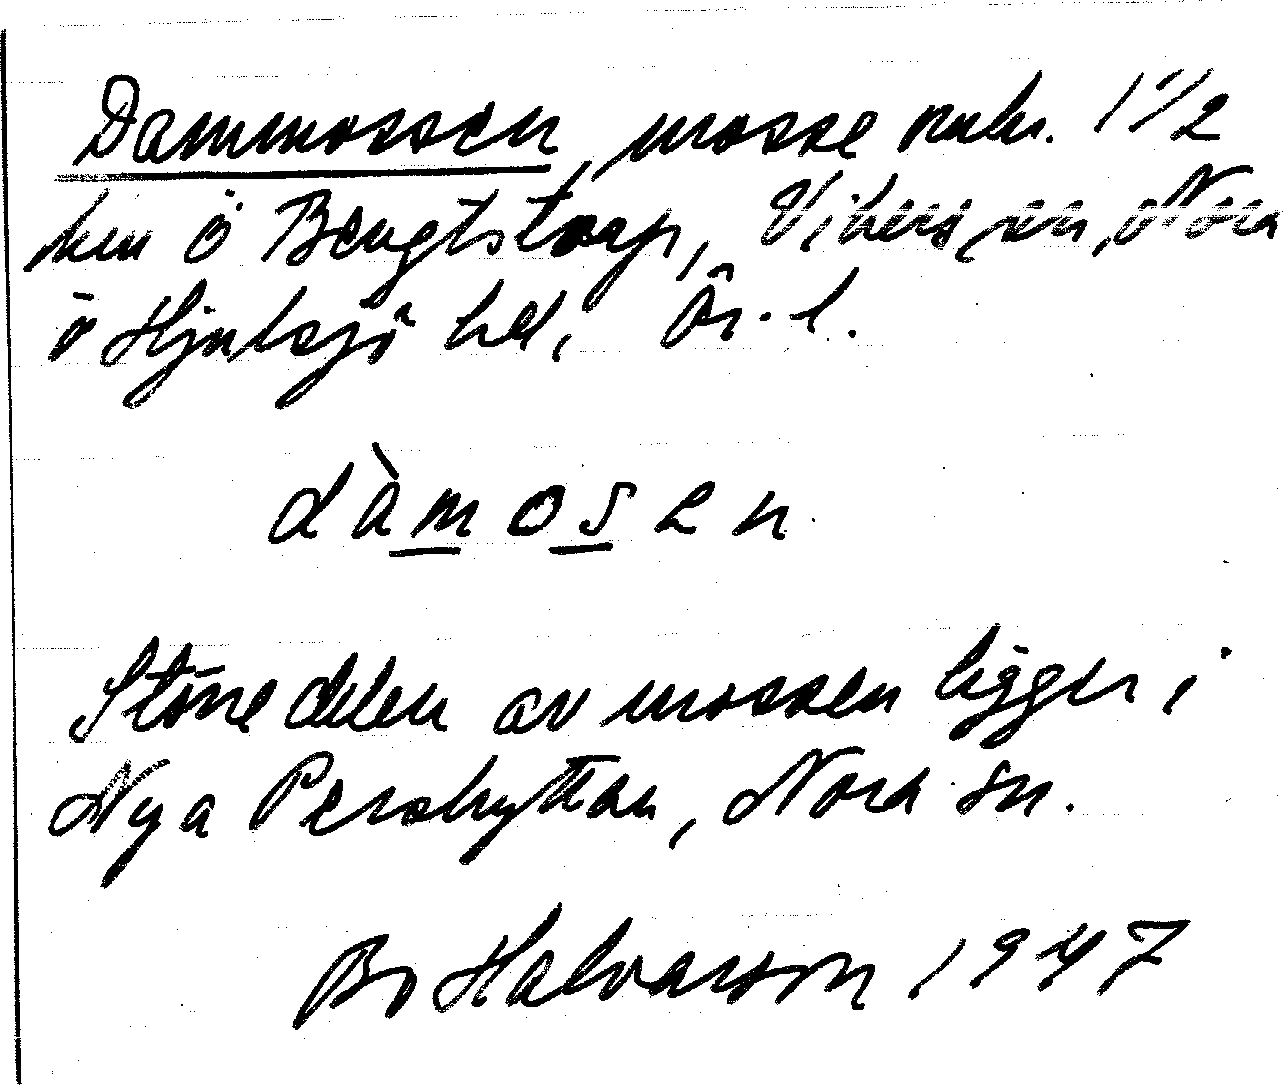 Dammossen, mosse omkr. 1 1/2
km ö Bengtstorp, Vikers sn, Nora
o Hjulsjö bd, Ör. l.
dàmosen
Större delen av mossen ligger i
Nya Pershyttan, Nora sn.
Bo Halvarson 1947